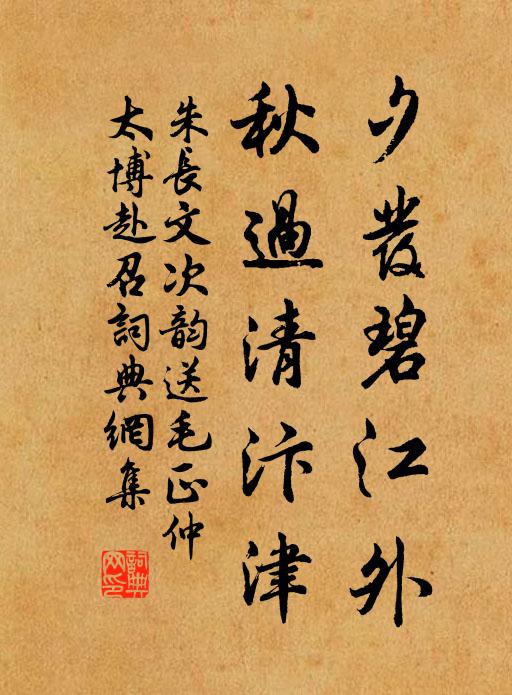 夕發碧江外
秋過清汴津
朱長文次韵送毛正仲
太博赴召詞典網集
詞典
网印